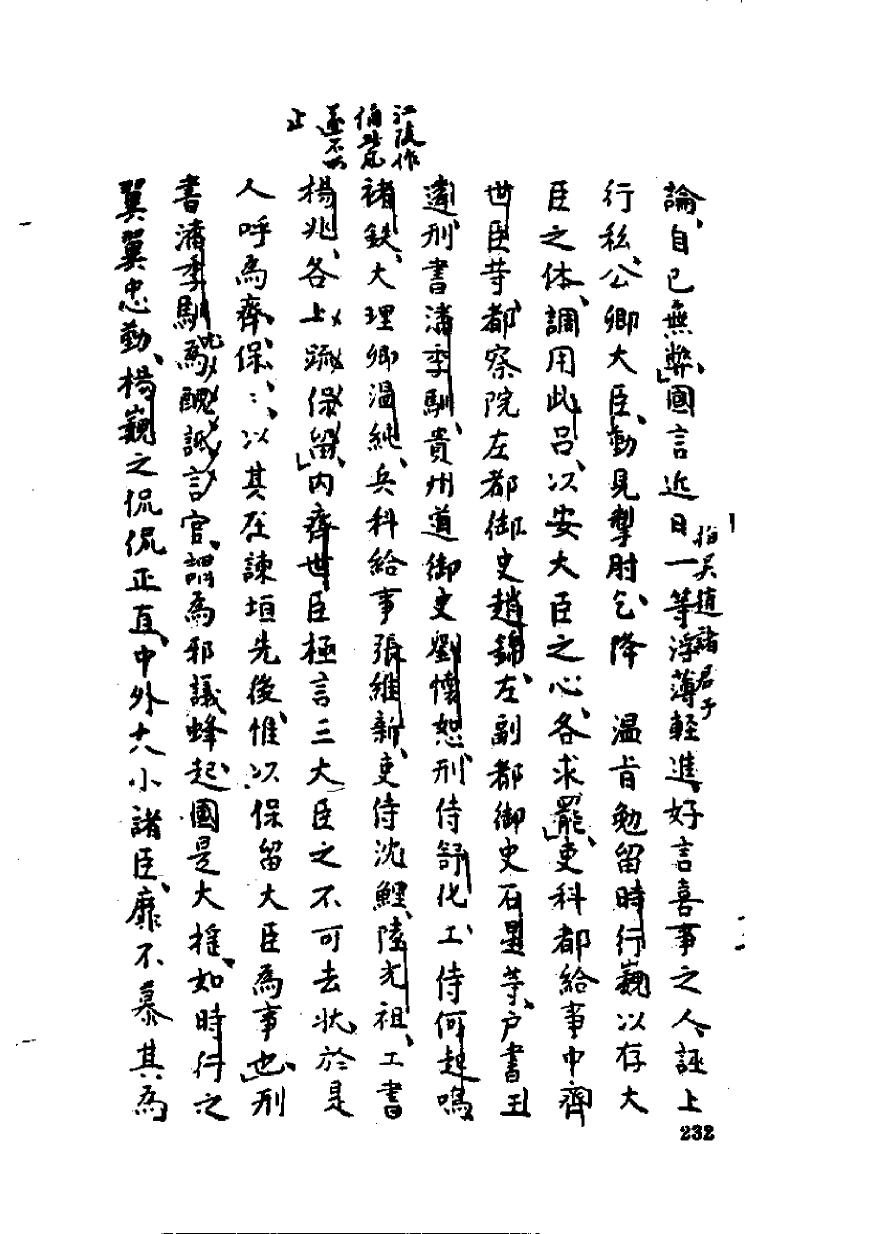 江陵作
俑
遂不
止
論、自己無弊、國言近日一等浮薄輕進、好言喜事之人、誣上
指吳趙諸君子
行私、公卿大臣、動見掣肘乞降　温旨勉留時行巍以存大
臣之体、調用此呂、以安大臣之心、各求罷、吏科都給事中齊
世臣等、都察院左都御史趙錦、左副都御史石星等、户書王
遴、刑書潘季馴、貴州道御史劉懷恕、刑侍舒化、工侍何起鳴
褚鈇、大理卿温純、兵科給事張維新、吏侍沈鯉、陸光祖、工書
楊兆、各上疏保留、内齊世臣極言三大臣之不可去狀、於是
人呼為齊保:、以其在諫垣先後、惟以保留大臣為事也、刑
書潘季馴為醜詆言官、謂為邪議蜂起、國是大搖、如時行之
翼翼忠勤、楊巍之侃侃正直、中外大小諸臣、靡不慕其為
232